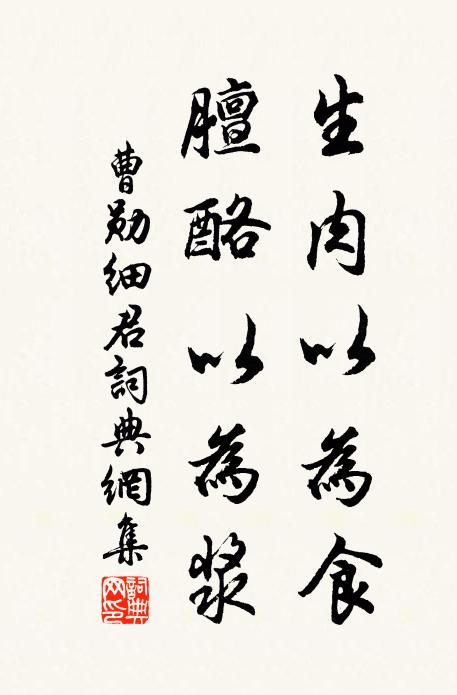 生肉以為食
膻酪以為漿
曹勛細君詞典網集
詞典網印